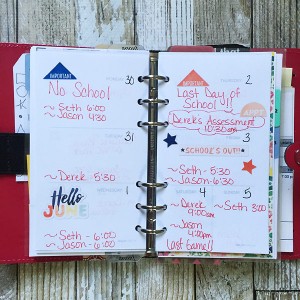 30
IMPORTANT
No School
~Seth 6:00
~Jason 4:30
31
~Derek 5:30
Hello
JUNE
~Seth - 6:00
~Jason - 6:00
2
IMPORTANT
Last Day of
School!
Derek's Assessment
10:30am
3
SCHOOL'S OUT!
~Seth - 5:30
~Jason - 6:30
4
5
~Derek
9:00am
~Seth 3:00
~Jason
4:00pm
Last Game!!